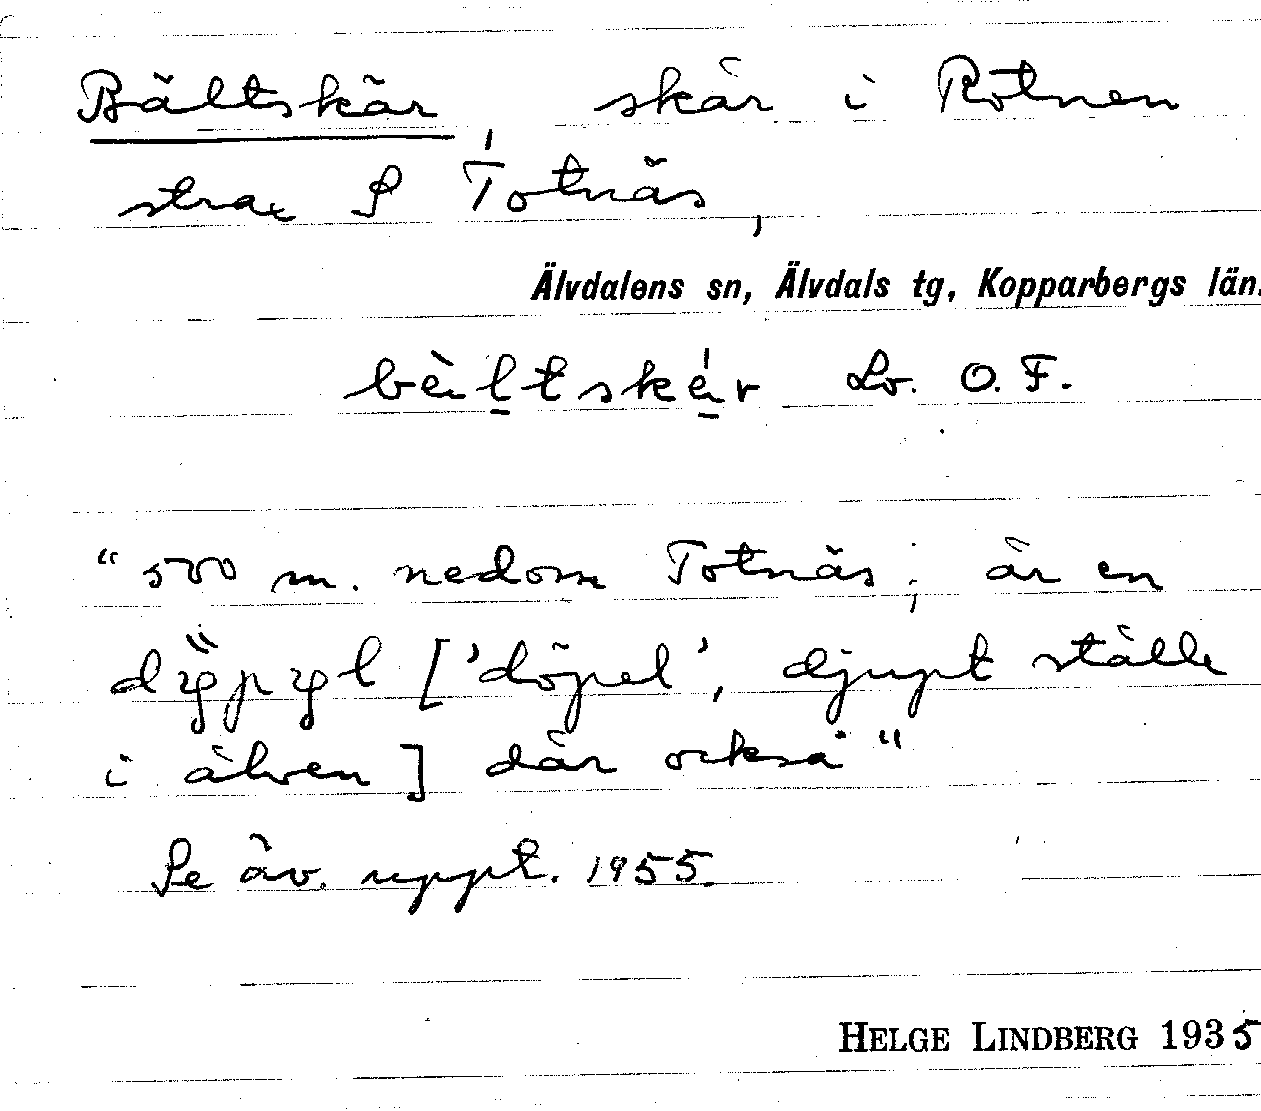 Bältskär, skär i Rotnen
strax S Totnäs,
Älvdalens sn, Älvdals tg, Kopparbergs län.
bèltskér Lv. O. F.
"500 m. nedom Totnäs; är en
['döpel', djupt ställe
i älven] där också"
Se äv. uppt. 1955.
HELGE LINDBERG 1935